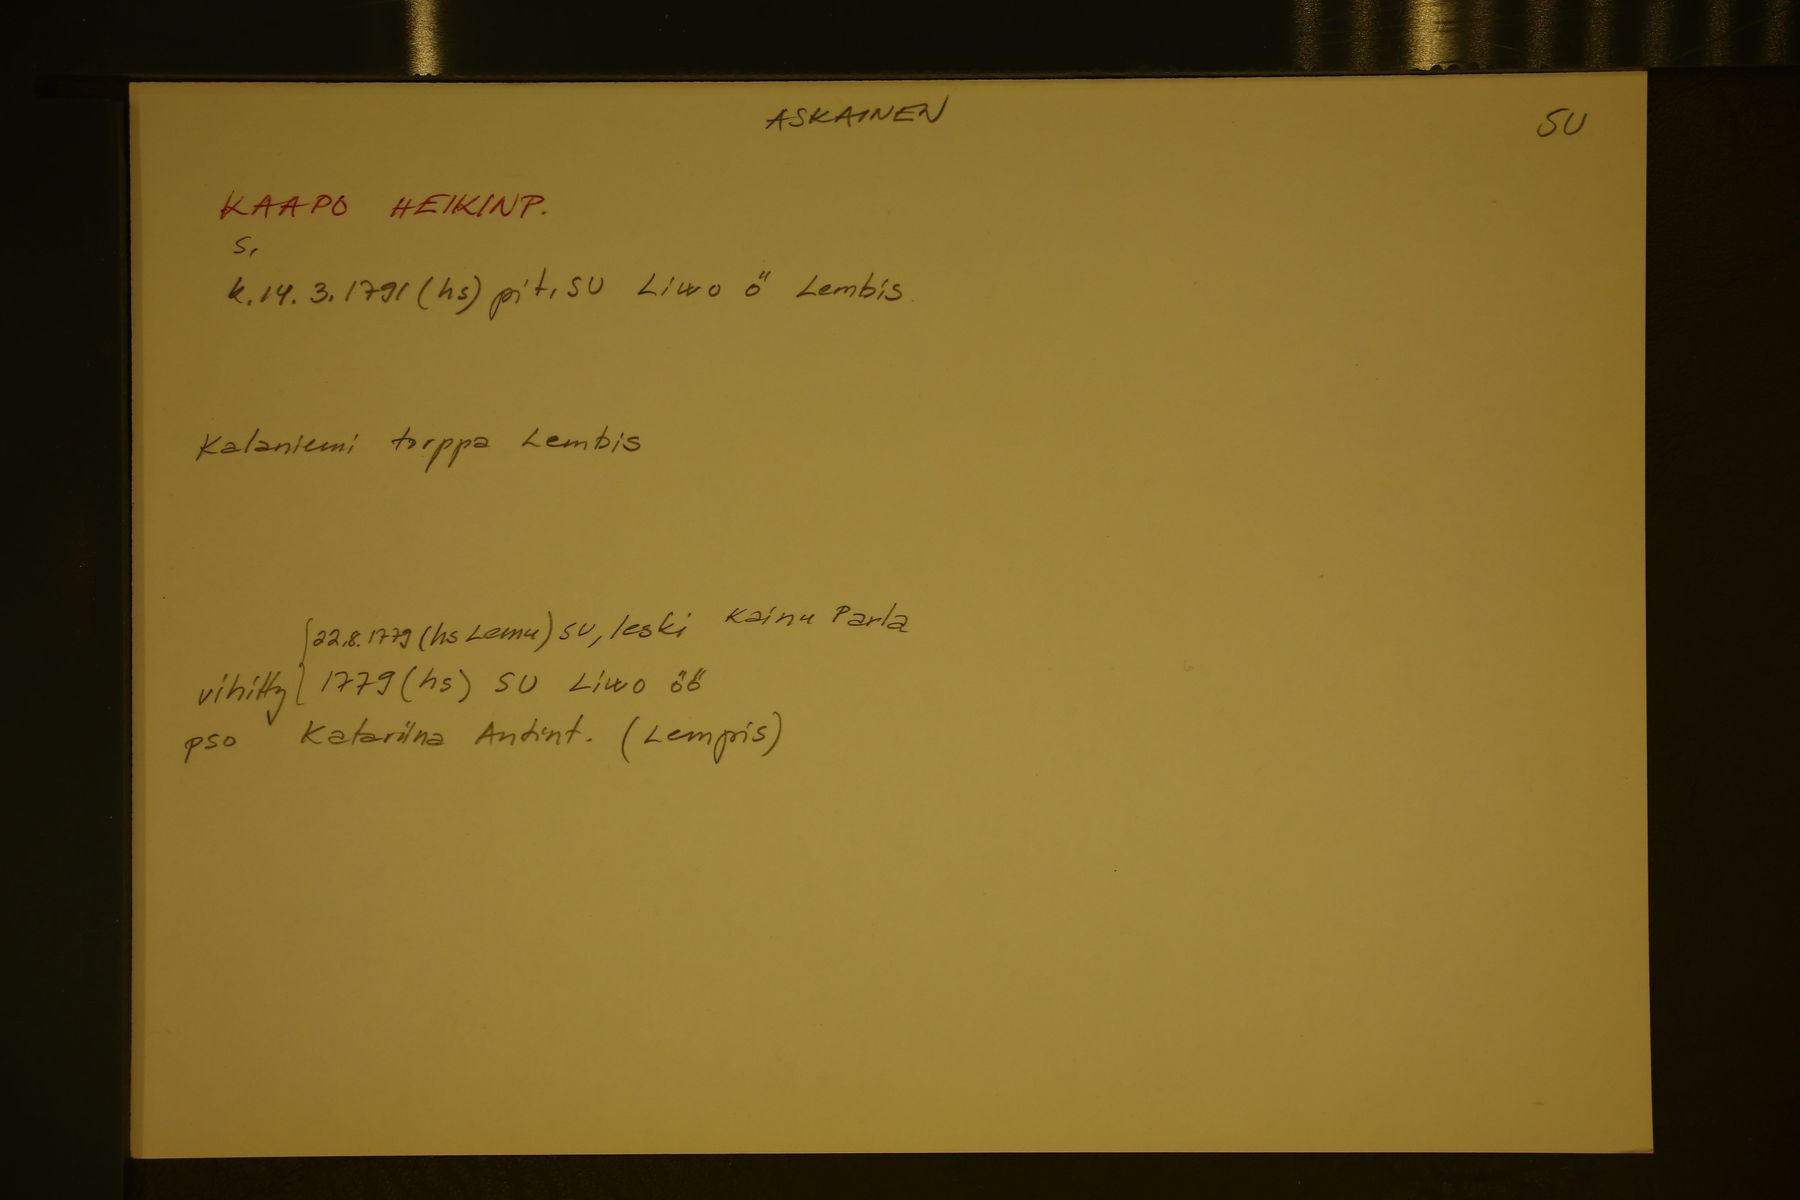 ASKAINEN SU
KAAPO HEIKINP.
s.
k. 14. 3. 1791 (hs) pit. SU Liwo ö Lembis
Kalaniemi torppa Lembis
22.8.1779 (hs Lemu) SU, leski Kainu Parla
vihitty 1779 (hs) SU Liwo öö
pso Katariina Antint. (Lempis)